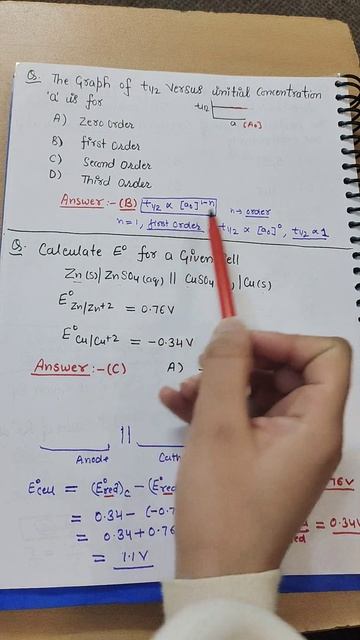 Q. The Graph of t1/2 versus initial concentration
'a' is for
t1/2
a [A0]
A) Zero order
B) first order
C) Second order
D) Third order
Answer:- (B) t1/2 ∝ [a0]^1-n n→ order
n=1, first order t1/2 ∝ [a0]^0, t1/2 ∝ 1
Q. Calculate E° for a Given cell
Zn(s)/ZnSO4(aq) || CuSO4 /Cu(s)
E°Zn/Zn+2 = 0.76V
E°Cu/Cu+2 = -0.34V
Answer:-(C) A)
||
Anode
E°cell = (E°red)C - (E°red
.76V
= 0.34 - (-0.7
= 0.34V
= 0.34+0.76
= 1.1V